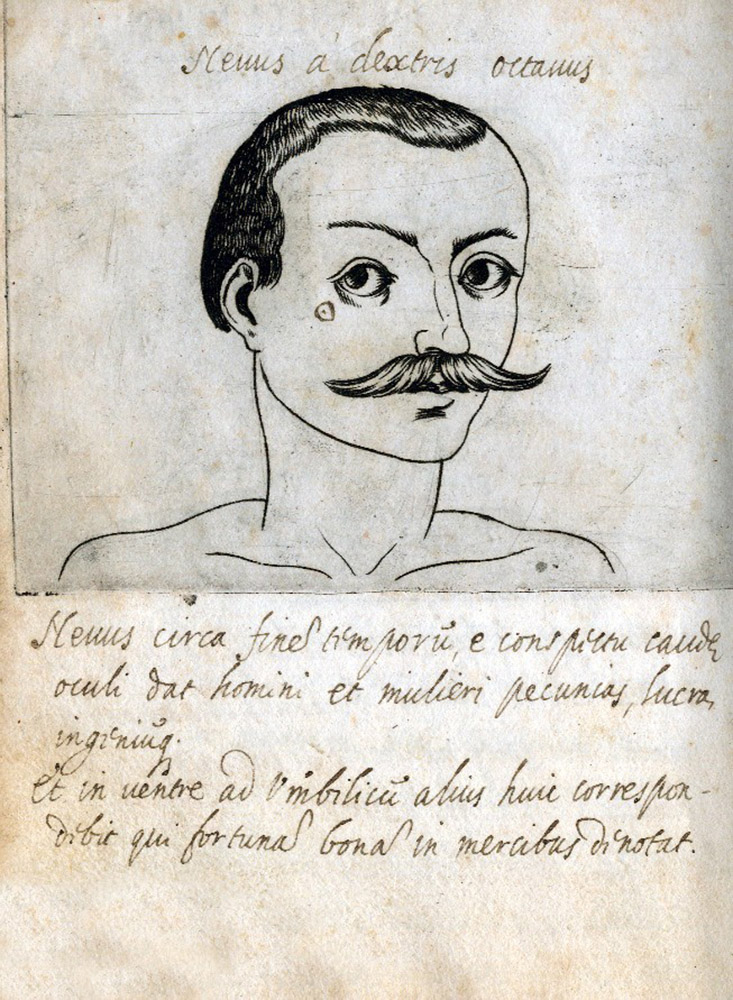 Neuus á dextris octauus
Neuus circa fines temporū, e conspectu caudę
oculi dat homini et mulieri pecunias, lucra,
ingeniūq.
Et in uentre ad Vmbilicū alius huic correspon-
debit qui fortunas bonas in mercibus denotat.